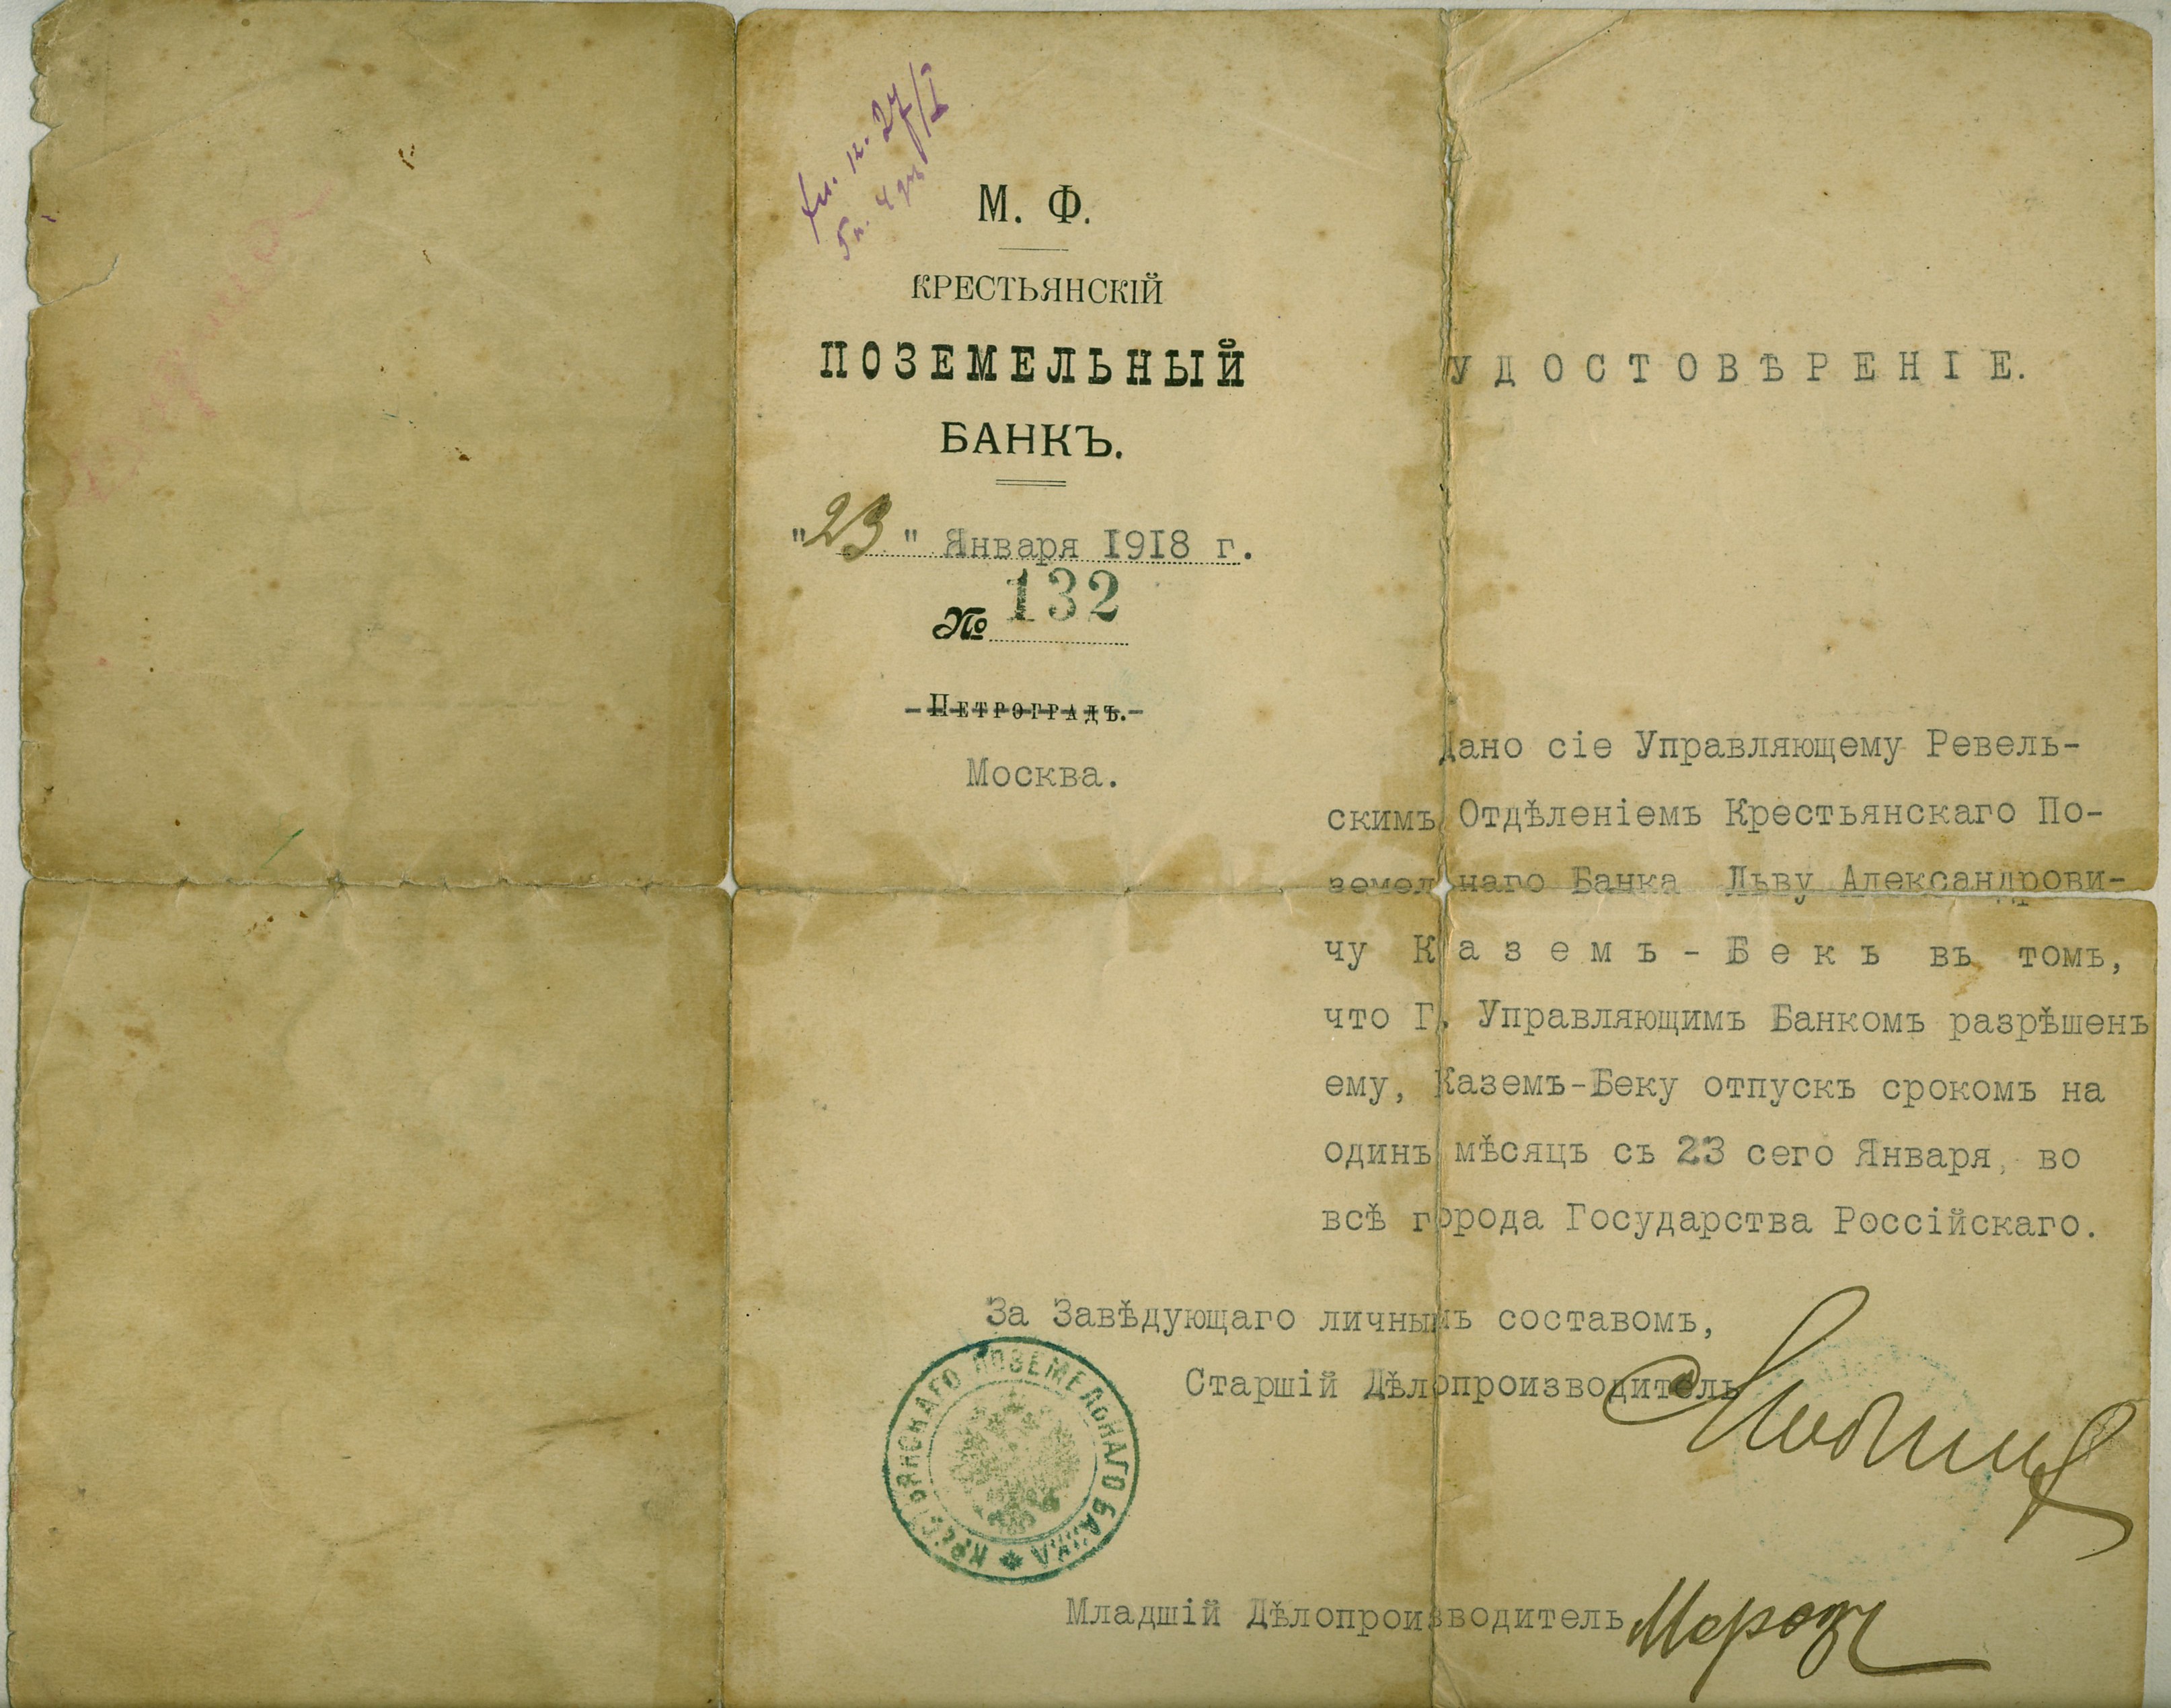 М. Ф.
КРЕСТЬЯНСКІЙ
ПОЗЕМЕЛЬНЫЙ
БАНКЪ.
"23" Января 1918 г.
№ 132
Петроградъ.
Москва.
УДОСТОВѢРЕНІЕ.
Дано сіе Управляющему Ревель-
скимъ Отдѣленіемъ Крестьянскаго По-
земельнаго Банка Льву Александрови-
чу Каземъ-Бекъ въ томъ,
что Г. Управляющимъ Банкомъ разрѣшенъ
ему, Каземъ-Беку отпускъ срокомъ на
одинъ мѣсяцъ съ 23 сего Января, во
всѣ города Государства Россійскаго.
За Завѣдующаго личнымъ составомъ,
Старшій Дѣлопроизводитель
КРЕСТЬЯНСКАГО ПОЗЕМЕЛЬНАГО БАНКА
Младшій Дѣлопроизводитель